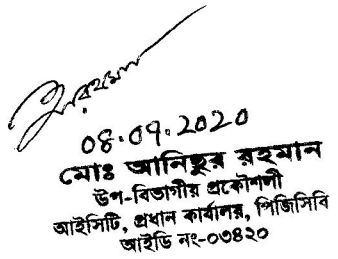 08.09.2020
মোঃ আনিছুর রহমান
উপ-বিভাগীয় প্রকৌশলী
আইসিটি, প্রধান কার্যালয়, পিজিসিবি
আইডি নং-০৩৪২০